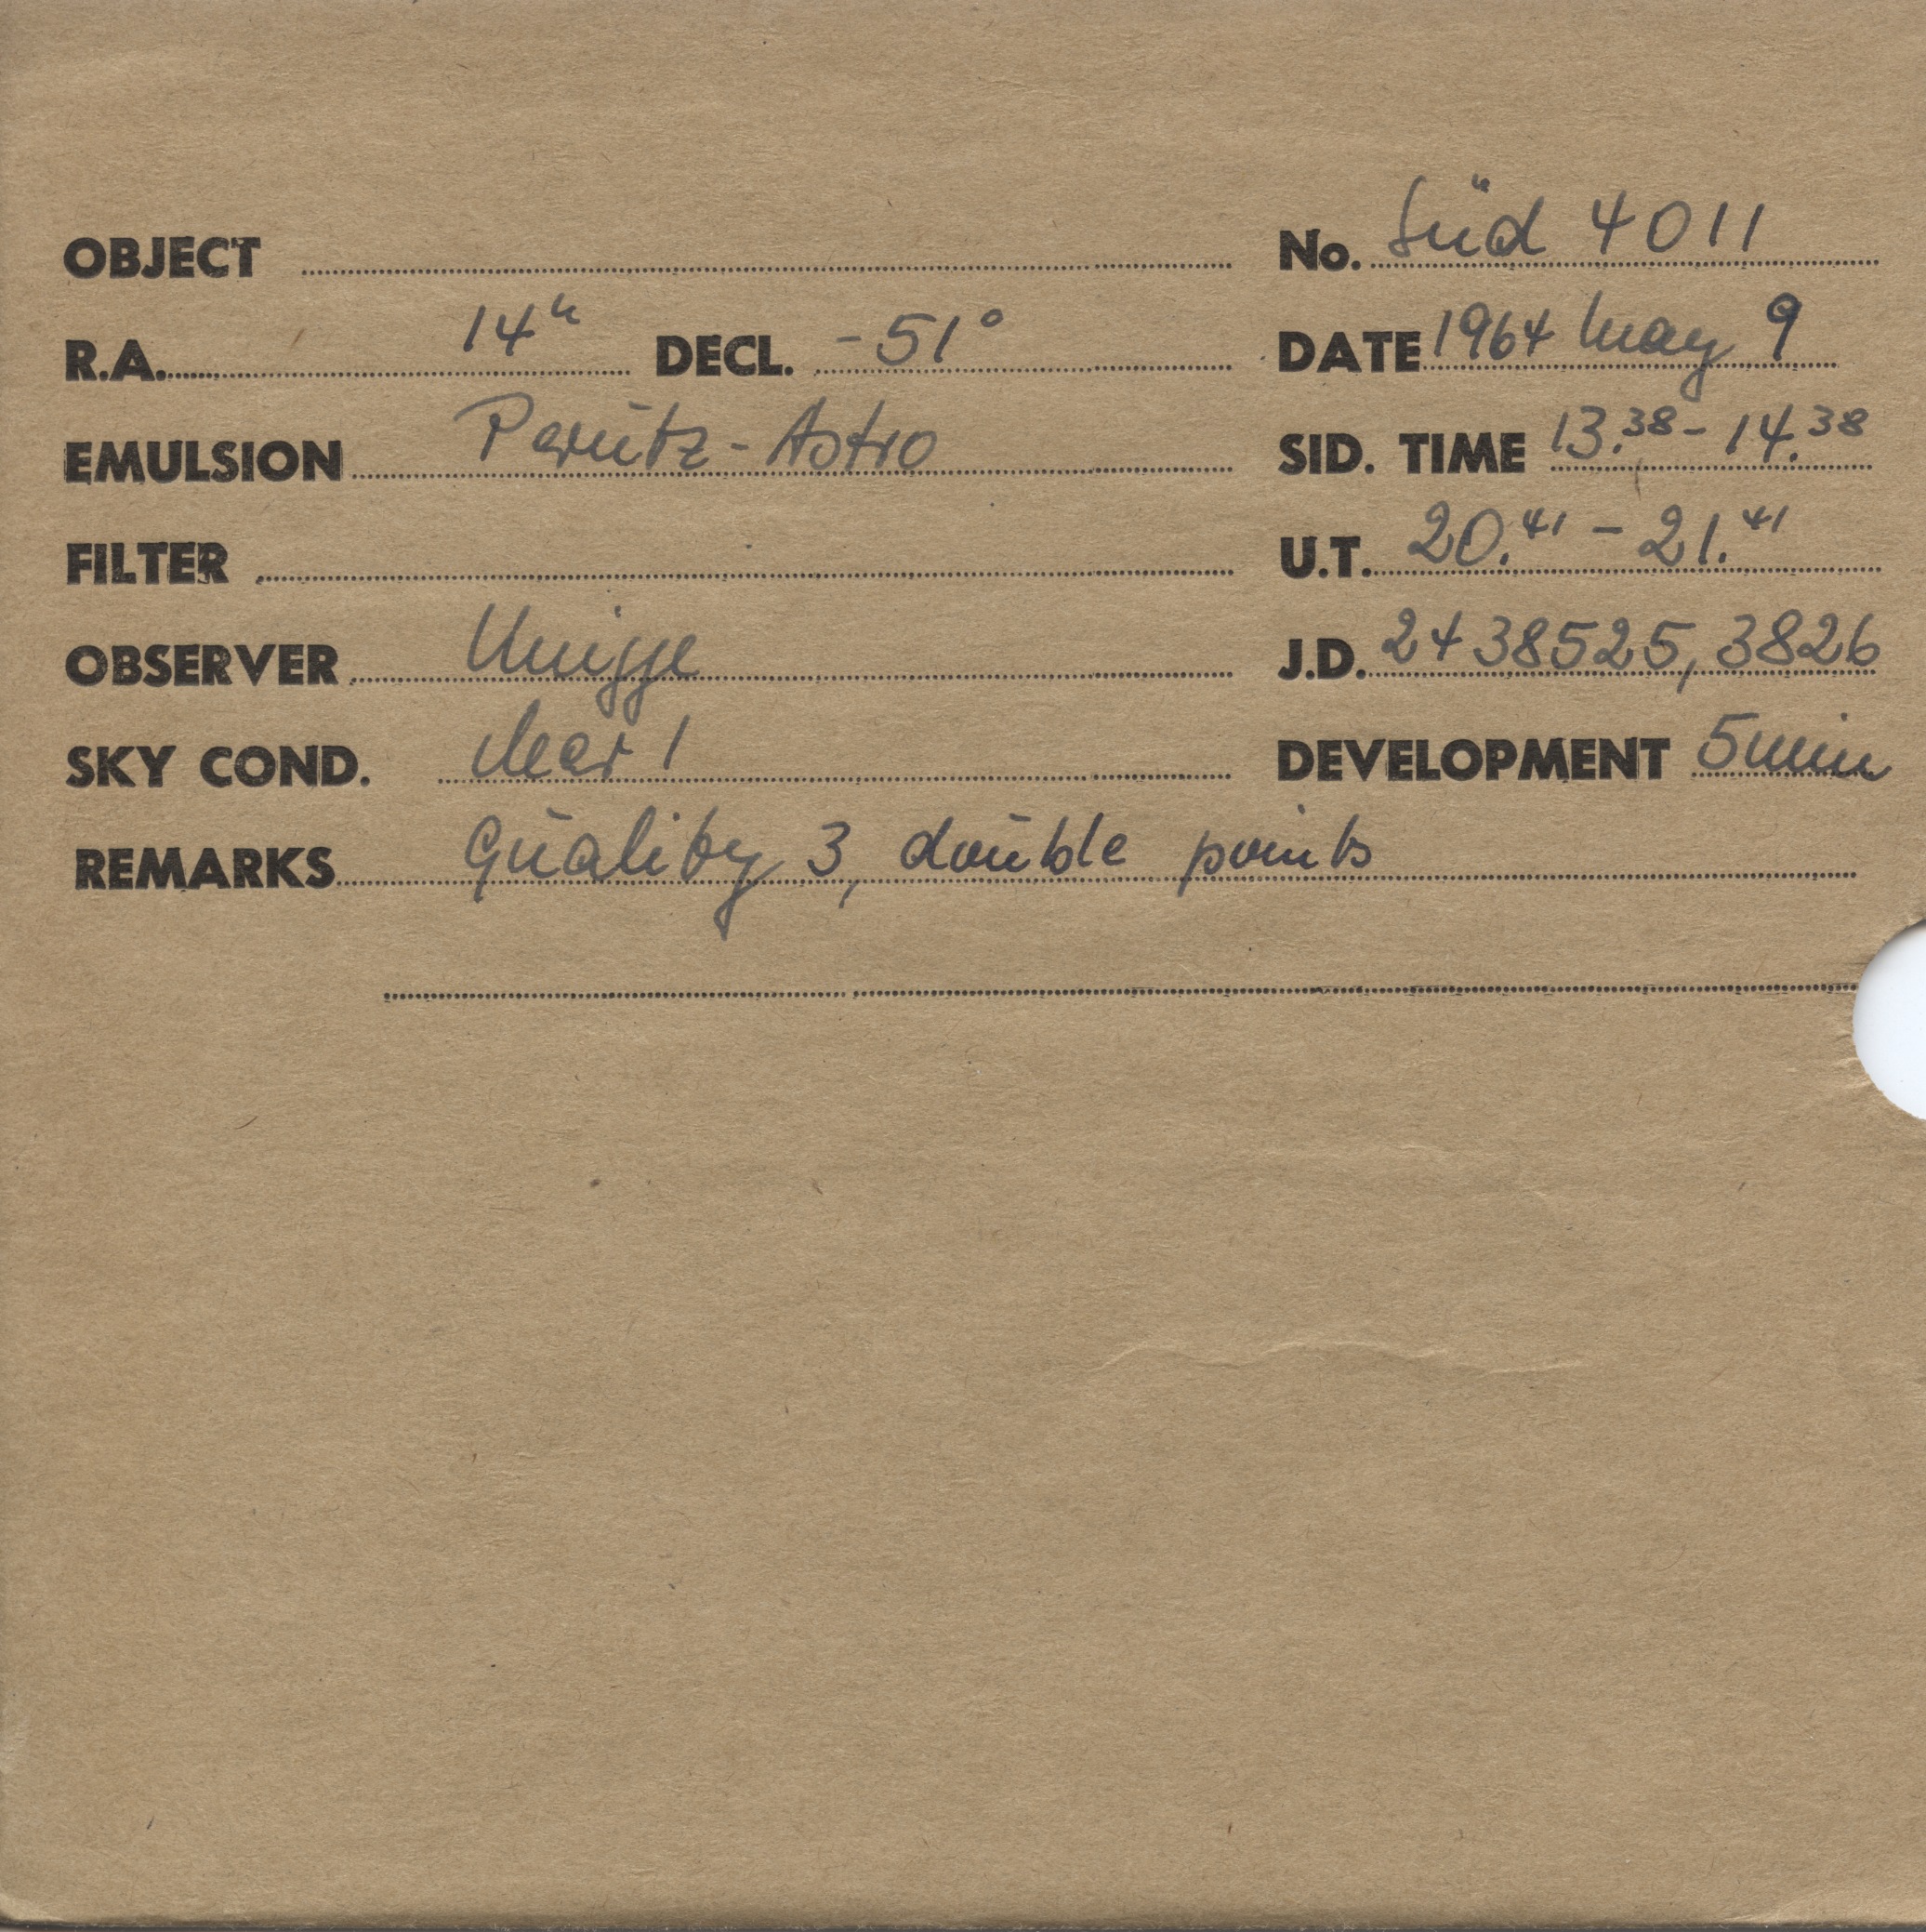 OBJECT No. Süd 4011
R.A. 14h DECL. -51° DATE 1964 May 9
EMULSION Perutz-Astro SID. TIME 13.38 - 14.38
FILTER U.T. 20.41 - 21.41
OBSERVER J.D. 2438525,3826
SKY COND. clear 1 DEVELOPMENT 5 min
REMARKS Quality 3, double points